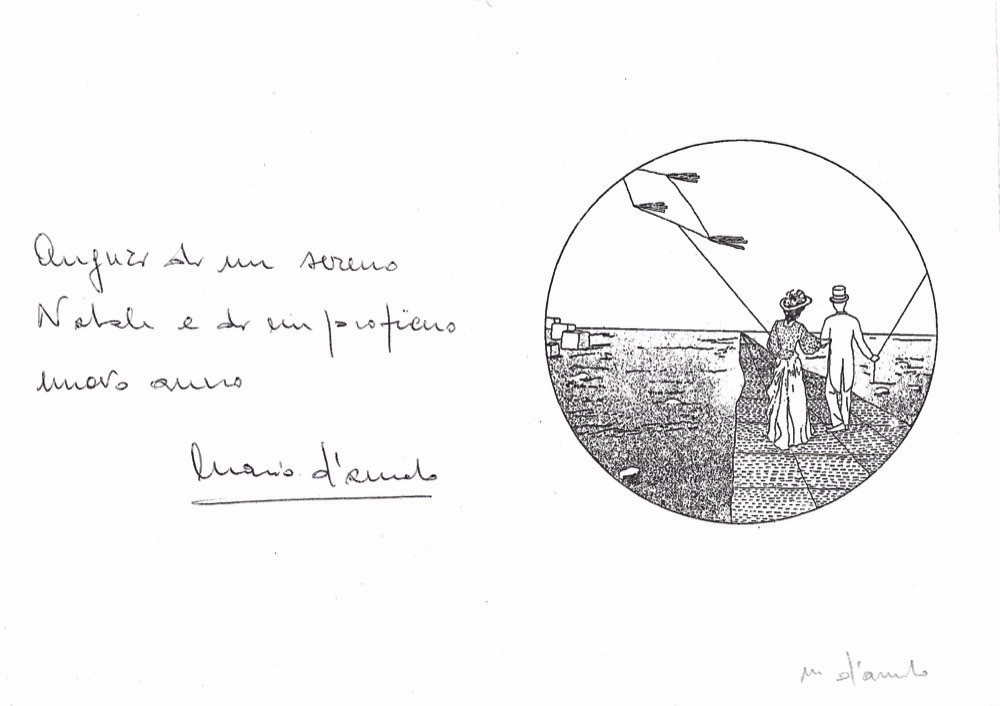 Auguri di un sereno
Natale e di un proficuo
nuovo anno
Mario d'
m d'